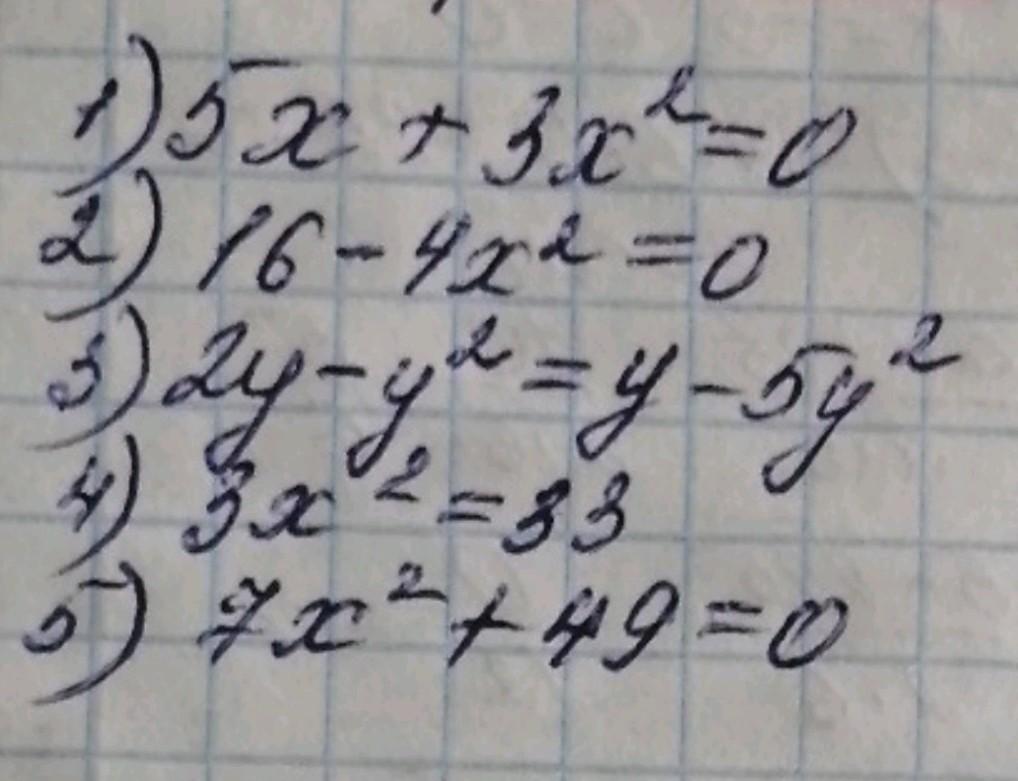 1) 5x + 3x² = 0
2) 16 - 4x² = 0
3) 2y - y² = y - 5y²
4) 3x² = 33
5) 7x² + 49 = 0